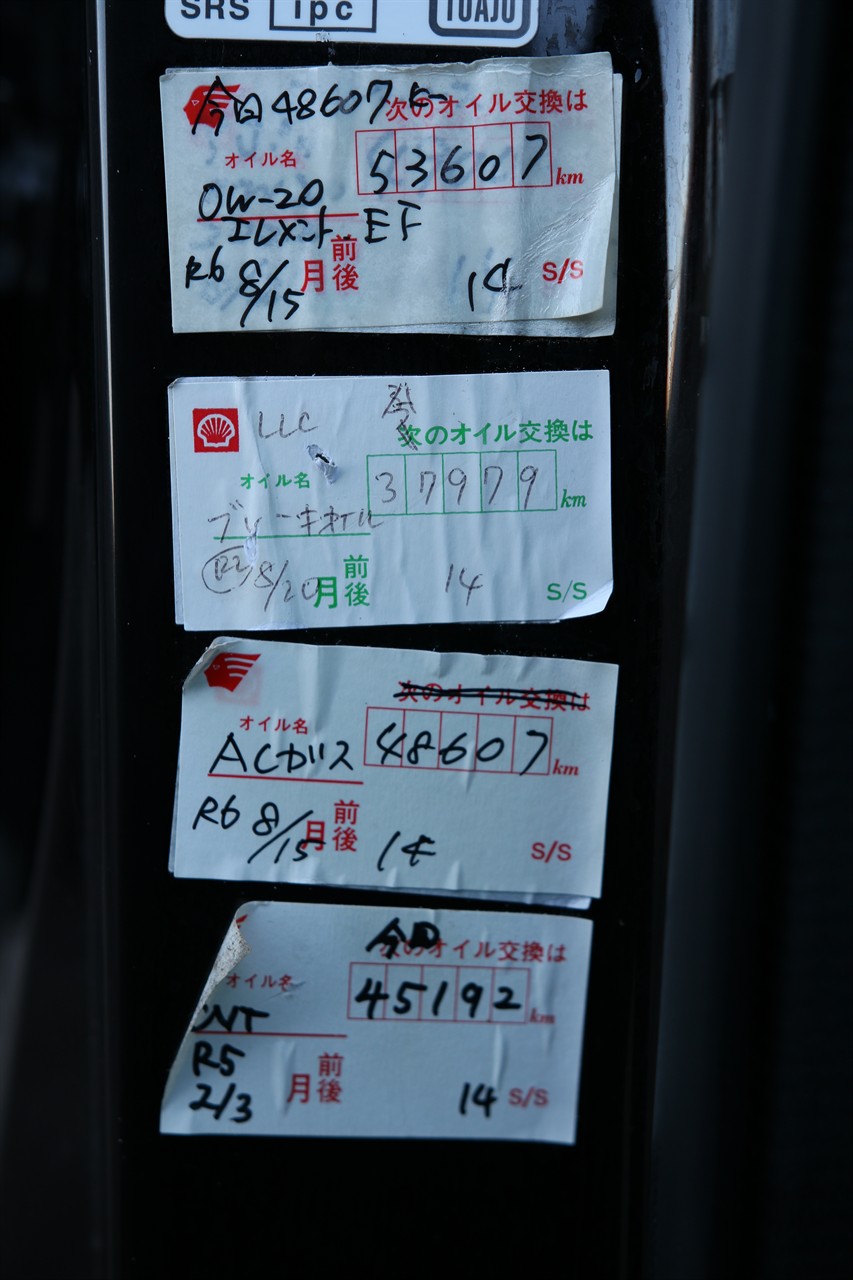 SRS ipc TUAJU
今日 48607 次のオイル交換は
オイル名 53607 km
0W-20
エレメント EF
R6 8/15 月 前後 14 S/S
LLC 次のオイル交換は
オイル名 37979 km
ブレーキオイル
R2 8/20 月 前後 14 S/S
次のオイル交換は
オイル名
ACガス 48607 km
R6 8/15 月 前後 14 S/S
今日 次のオイル交換は
オイル名 45192 km
R5
2/3 月 前後 14 S/S